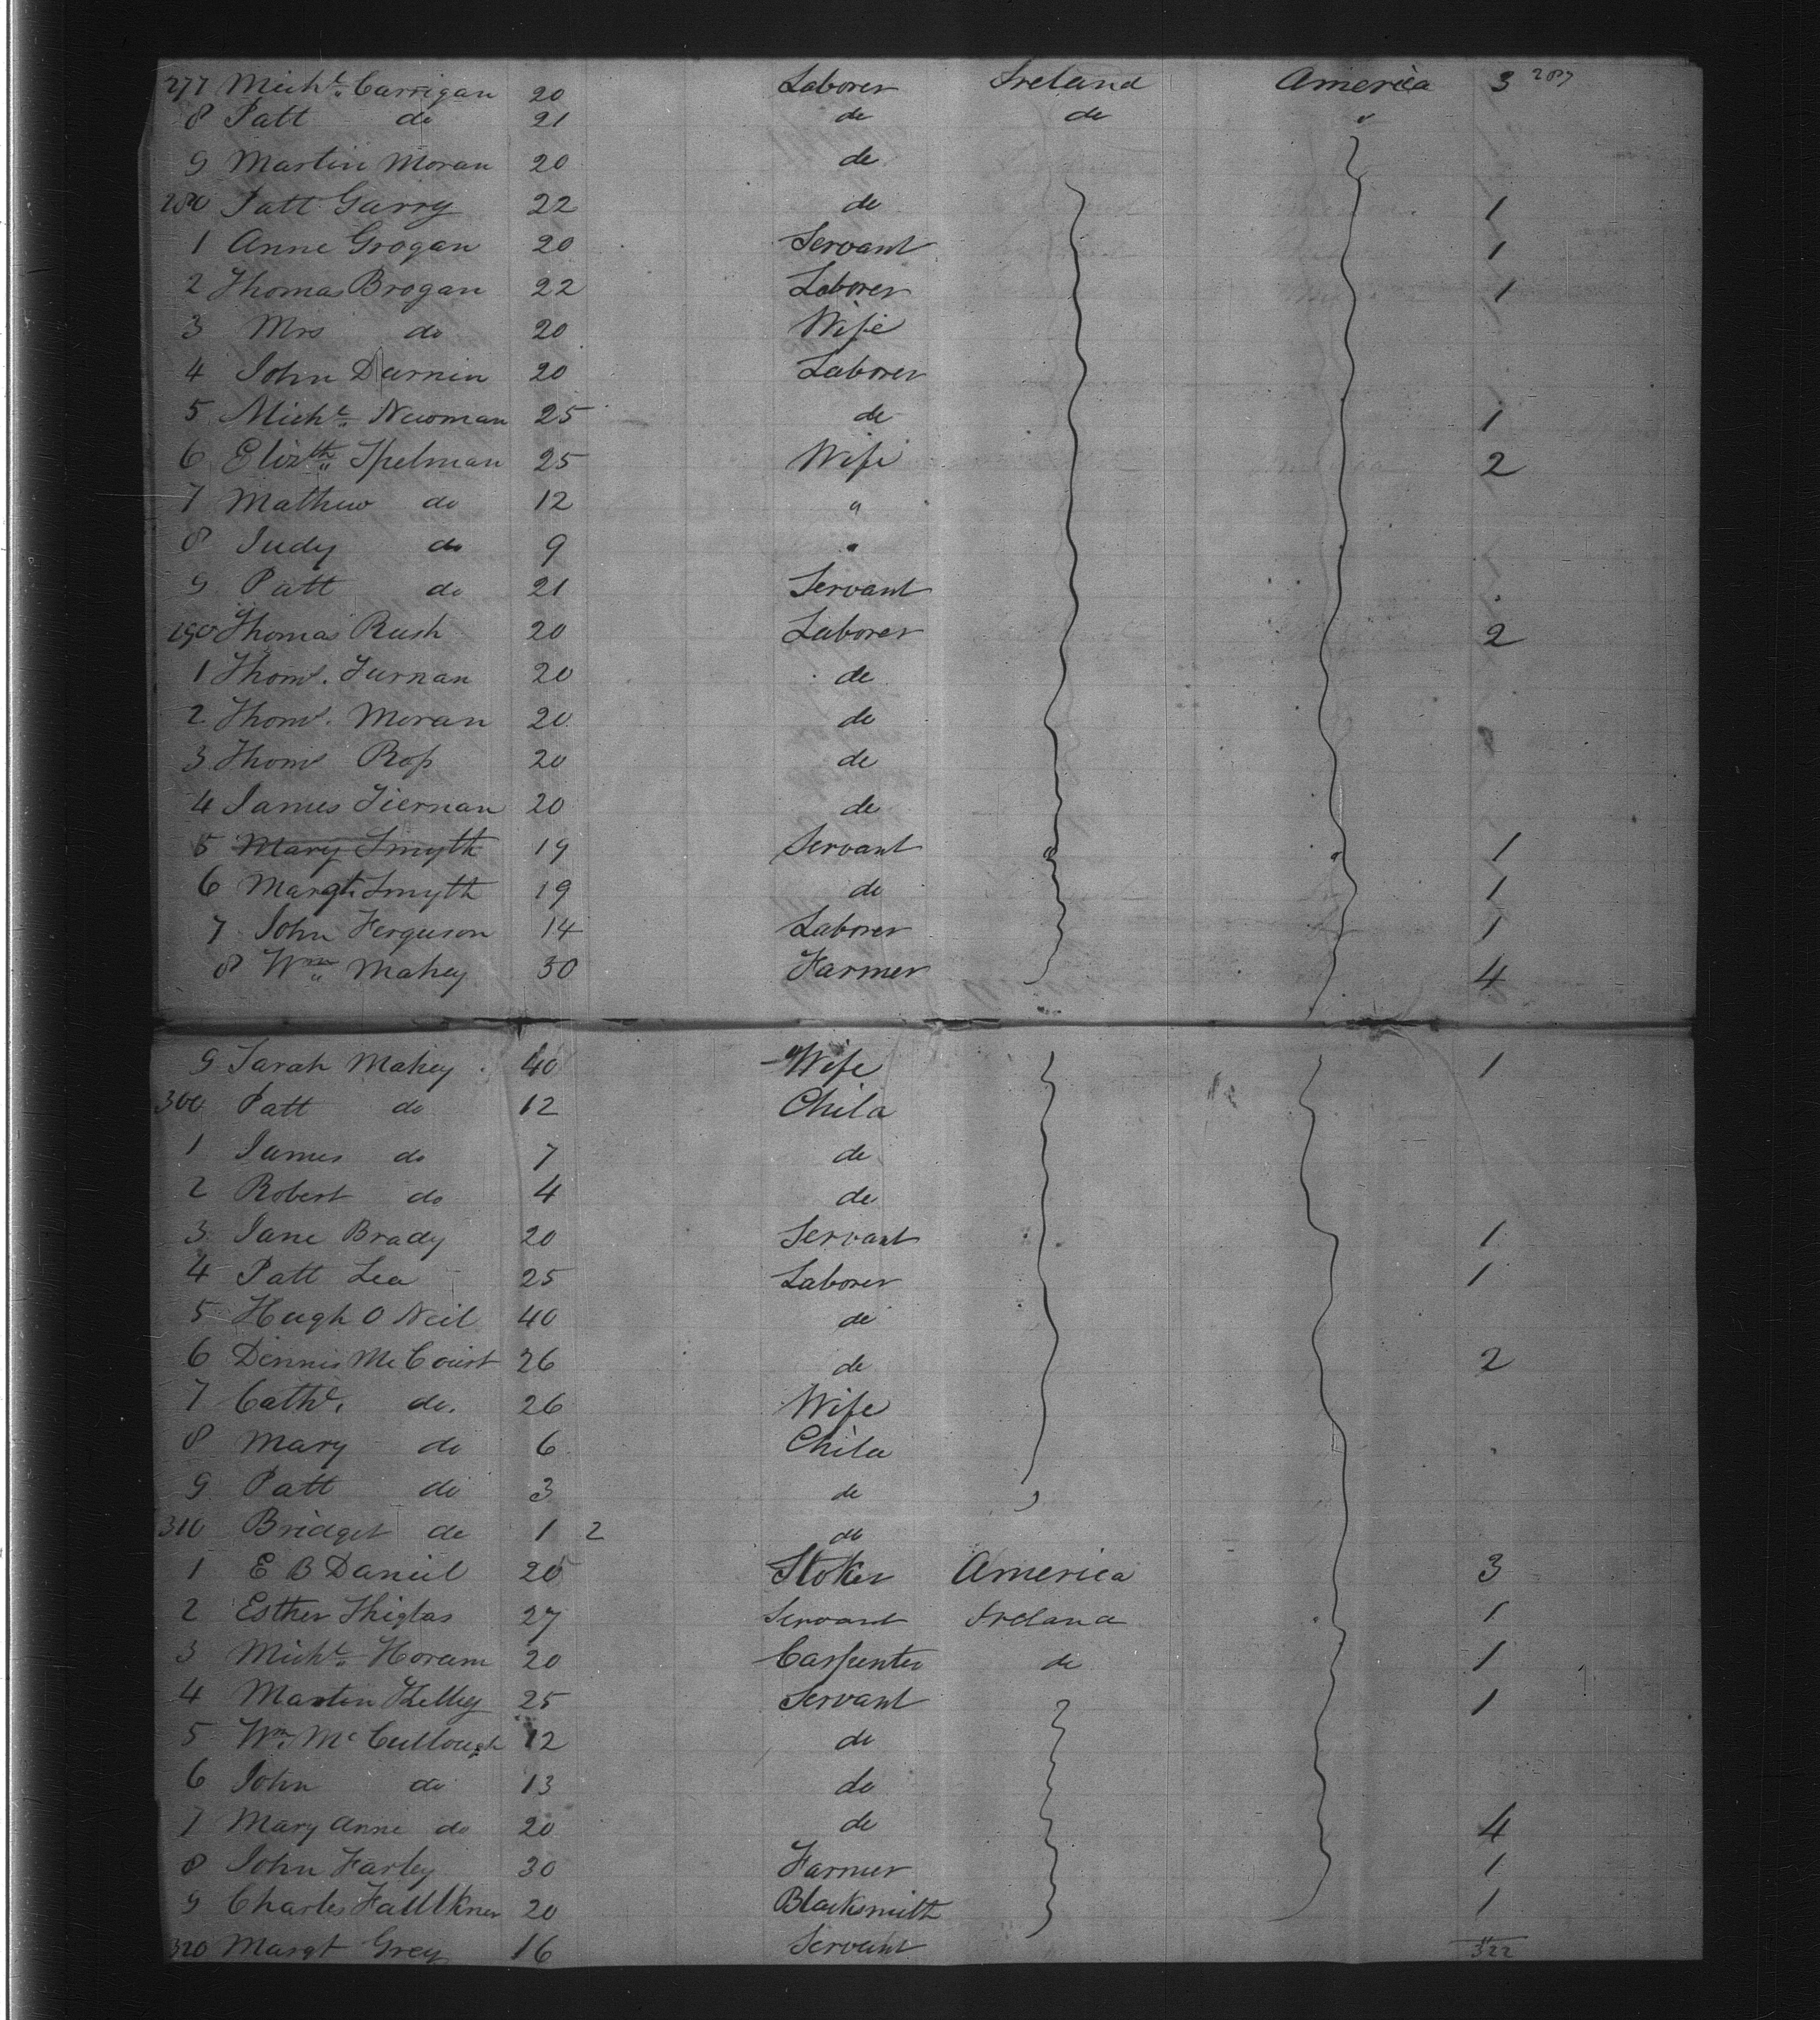 277 Michl. Carrigan 20 Laborer Ireland America 3 287
8 Patt do 21 do do "
9 Martin Moran 20 do
280 Patt Garry 22 do 1
1 Anne Grogan 20 Servant 1
2 Thomas Brogan 22 Laborer 1
3 Mrs do 20 Wife
4 John Durnin 20 Laborer
5 Michl. Newman 25 do 1
6 Elizth Spelman 25 Wife 2
7 Mathew do 12 "
8 Judy do 9 "
9 Patt do 21 Servant
290 Thomas Rush 20 Laborer 2
1 Thos. Furnan 20 do
2 Thos. Moran 20 do
3 Thos Ross 20 do
4 James Tiernan 20 do
5 Mary Smyth 19 Servant 1
6 Margt. Smyth 19 do 1
7 John Ferguson 14 Laborer 1
8 Wm Mahey 30 Farmer 4
9 Sarah Mahey 40 Wife 1
300 Patt do 12 Child
1 James do 7 do
2 Robert do 4 do
3 Jane Brady 20 Servant 1
4 Patt Lea 25 Laborer 1
5 Hugh O Neil 40 do
6 Dennis McCourt 26 do 2
7 Cathe. do. 26 Wife
8 Mary do 6 Child
9 Patt do 3 do
310 Bridget do 1 2 do
1 E B Daniel 20 Stoker America 3
2 Esther 27 Servant Ireland 1
3 Michl. Horam 20 Carpenter do 1
4 Martin Kelley 25 Servant 1
5 Wm. McCullough 12 do
6 John do 13 do
7 Mary Anne do 20 do 4
8 John Farley 30 Farmer 1
9 Charles Faulkner 20 Blacksmith 1
320 Margt Grey 16 Servant 322